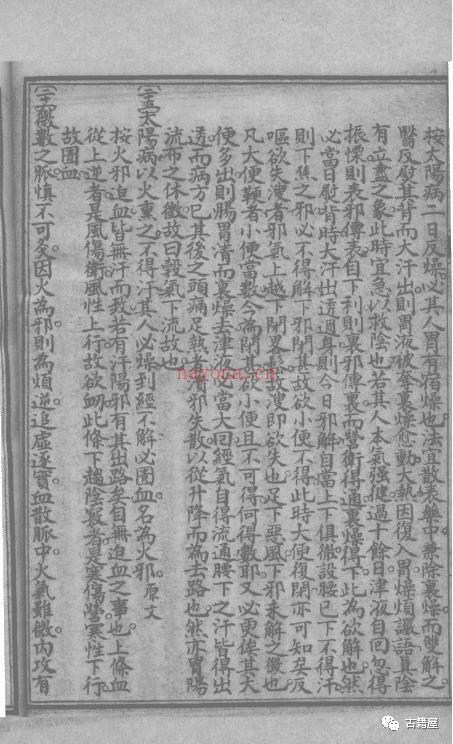 按太陽病二日反燥必其人胃有宿燥也法宜散表藥中兼除裏燥而雙解之
醫反熨其背而大汗出則胃液被奪裏燥愈動大熱因復入胃燥煩讝語真陰
有立盡之象此時宜急以救陰也若其人本氣強健過十餘日津液自回忽得
振慄則表邪傳表自下利則裏邪傳裏而營衛得通裏燥得下此為欲解也然
必當日熨背時大汗出透過身則今日邪解自當上下俱徹設腰已下不得汗
則下焦之邪必不得解下邪閉甚故欲小便不得此時大便復閉亦可知矣反
嘔欲失溲者邪氣上越下閉畧鬆故溲即欲失也足下惡風下邪未解之徵也
凡大便鞕者小便當數今為閉甚欲小便且不可得何得數耶又必更俟其大
便多出則腸胃清而裏燥去津液沒當大回經氣自得流通腰下之汗皆得出
透而病方已其後之頭痛足熱者實邪失散以從升降而為去路也然亦胃陽
流布之休徵故曰穀氣下流故也
(二十五)太陽病以火熏之不得汗其人必燥到經不解必圊血名為火邪 原文
按火邪迫血皆無汗而致若有汗陽邪有其出路矣自無迫血之事也上條血
從上逆者是風傷衛風性上行故欲衂此條下趨陰竅者是寒傷營寒性下行
故圊血
(二十六)微數之脈慎不可灸因火為邪則為煩逆追虛逐實血散脈中火氣雖微內攻有
nayona.cn
古籍屋